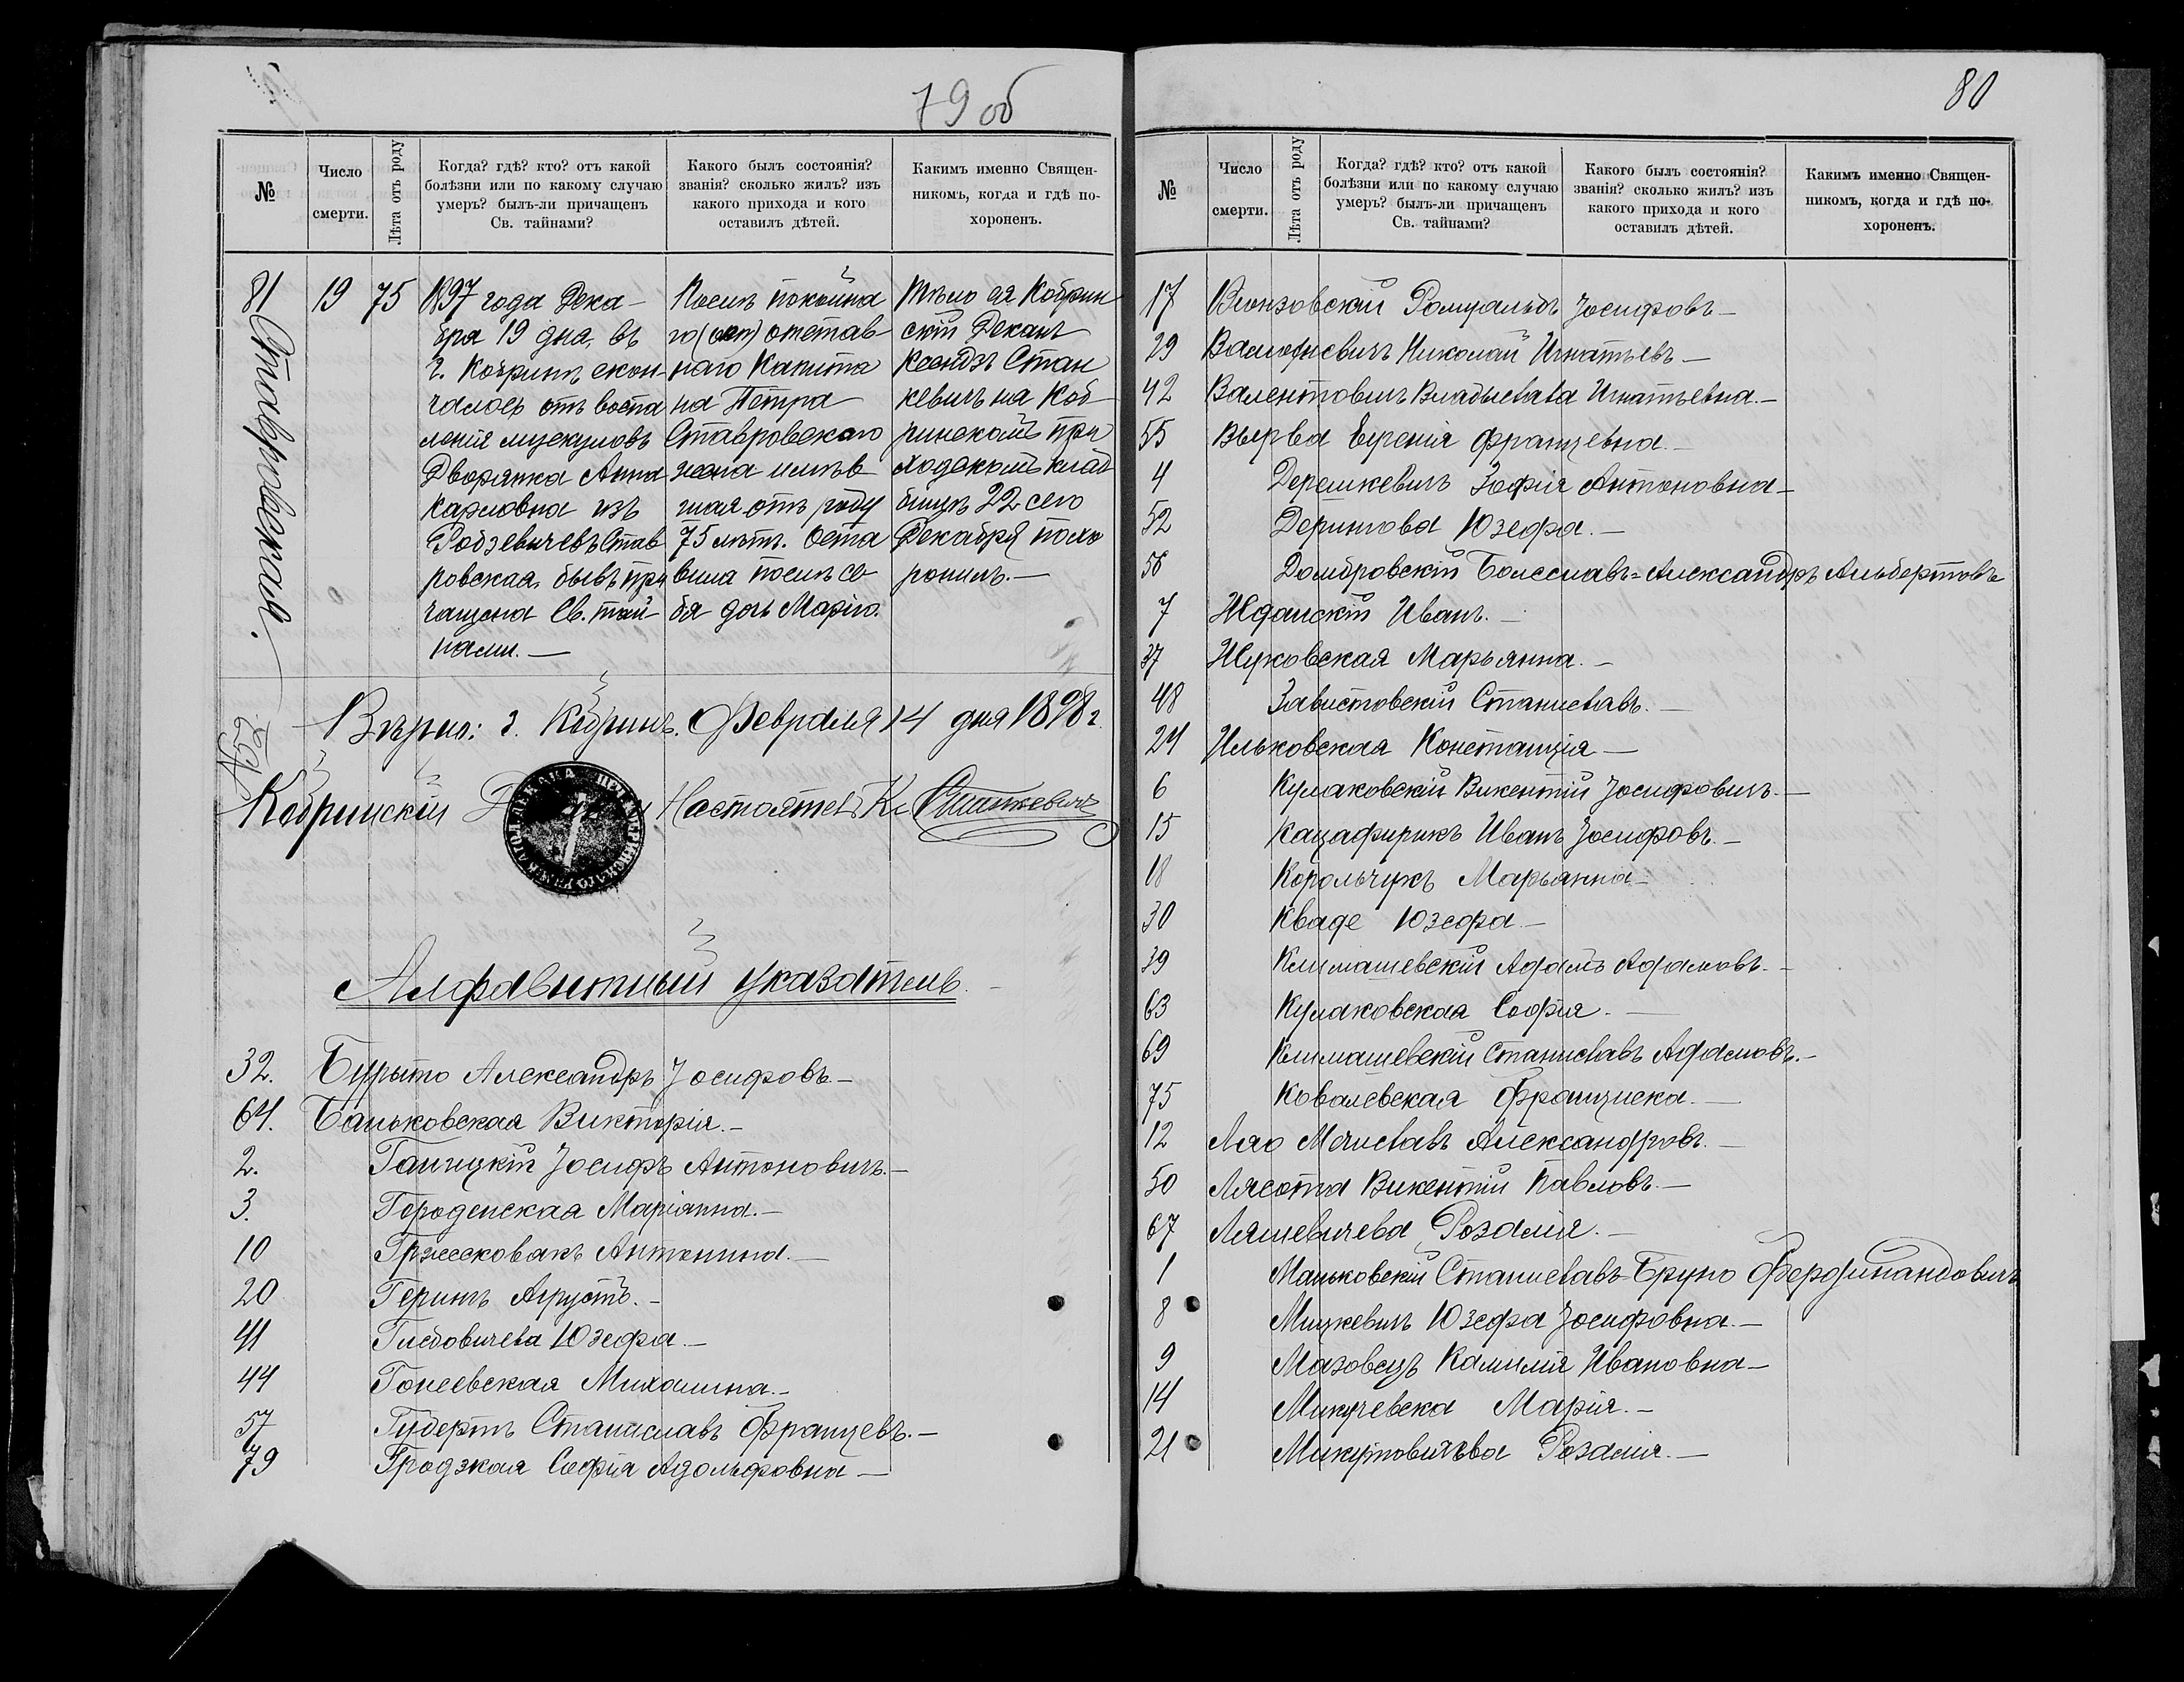 79 об
№
Число
смерти.
Лѣта отъ роду
Когда? гдѣ? кто? отъ какой
болѣзни или по какому случаю
умеръ? былъ-ли причащенъ
Св. тайнами?
Какого былъ состоянія?
званія? сколько жилъ? изъ
какого прихода и кого
оставилъ дѣтей.
Какимъ именно Священ-
никомъ, когда и гдѣ по-
хороненъ.
81
Ставровская.
19
75
1897 года Дека-
бря 19 дня, въ
г. Кобринѣ скон-
чалось отъ воспа
ленія мускуловъ
Дворянка Анна
Карловна изъ
Родзевичевъ Став
ровская, бывъ при
чащена Св. тай-
нами.—
Послѣ покойна
го отстав
наго Капита
на Петра
Ставровскаго
жена имѣв
шая отъ роду
75 лѣтъ. Оста
вила послѣ се
бя дочь Марію.
Тѣло ея Кобрин
скій Деканъ
Ксендзъ Стан
кевичъ на Коб
ринскомъ при
ходскомъ клад
бищѣ 22 сего
Декабря похо
ронилъ.—
Вѣрно: г. Кобринъ. Февраля 14 дня 1898 г.
№52
Кобринскій Настоятель Кс
Алфавитный указатель.
32. Бурыто Александръ Іосифовъ.—
64. Баньковская Викторія.—
2. Галицкій Іосифъ Антоновичъ.—
3. Городенская Маріанна.—
10 Гржесковякъ Антонина.—
20 Герингъ Августъ.—
41 Глебовичева Юзефа.—
44 Гонсевская Михалина.—
57 Губертъ Станиславъ Францевъ.—
79 Гродзкая Софія Адольфовна—
80
№
Число
смерти.
Лѣта отъ роду
Когда? гдѣ? кто? отъ какой
болѣзни или по какому случаю
умеръ? былъ-ли причащенъ
Св. тайнами?
Какого былъ состоянія?
званія? сколько жилъ? изъ
какого прихода и кого
оставилъ дѣтей.
Какимъ именно Священ-
никомъ, когда и гдѣ по-
хороненъ.
17 Вионзовскій Ромуальдъ Іосифовъ—
29 Николай Игнатьевъ—
42 Валентовичъ Владыслава Игнатьевна.—
55 Вырва Евгенія Францевна.—
4 Дерешкевичъ Зофія Антоновна—
52 Дерингова Юзефа.—
56 Домбровскій Болеславъ=Александръ Альбертовъ
7 Жданскій Иванъ.—
37 Жуковская Марьянна.—
48 Завистовскій Станиславъ.—
24 Ильковская Констанція—
6 Кулаковскій Викентій Іосифовичъ.—
15 Кацафирикъ Иванъ Іосифовъ.—
18 Корольчукъ Марьянна—
30 Кваде Юзефа.—
39 Климашевскій Адамъ Адамовъ.—
63 Кулаковская Софія.—
69 Климашевскій Станиславъ Адамовъ.—
75 Ковалевская Франциска.—
12 Ляо Мечиславъ Александровъ.—
50 Лясота Викентій Павловъ.—
67 Ляшевичева Розалія.—
1 Маньковскій Станиславъ-Бруно Фердинандовичъ
8 Мицкевичъ Юзефа Іосифовна.—
9 Мазовецъ Камилія Ивановна—
14 Микучевска Марія.—
21 Розалія.—